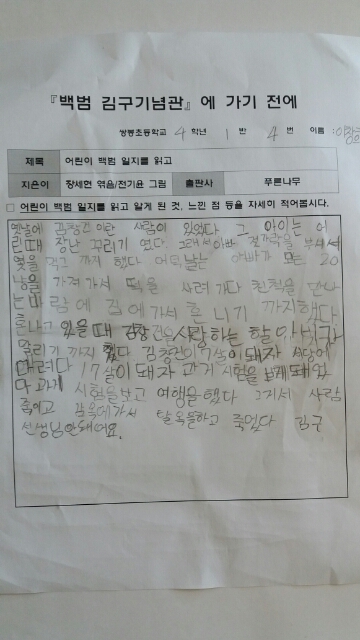 『백범 김구기념관』에 가기 전에
쌍봉초등학교 4 학년 1 반 4 번 이름 :
제목 어린이 백범 일지를 읽고
지은이 장세현 엮음/전기윤 그림 출판사 푸른나무
□ 어린이 백범 일지를 읽고 알게 된 것, 느낀 점 등을 자세히 적어봅시다.
옛날에 김창 이란 사람이 있었다. 그 아이는 어
린때 장난 꾸러기 였다. 그래서 아빠 부셔서
엿을 먹고 까지 했다 어떤날는 아빠가 모든 20
냥을 가져가서 떡을 사러가다 친척을 만나
는 바람에 집에가서 혼나기 까지했다
혼나고 있을때 김창 사랑하는 할아버지가
말리기 까지 했다 김창 이 7살이 돼자 서당에
다녔다 17살이 돼자 과거 시험을 보게돼었
다 과거 시험을 보고 여행을 했다 그래서 사람
죽이고 감옥에가서 탈옥을하고 죽었다 김구
선생님 안돼어요.